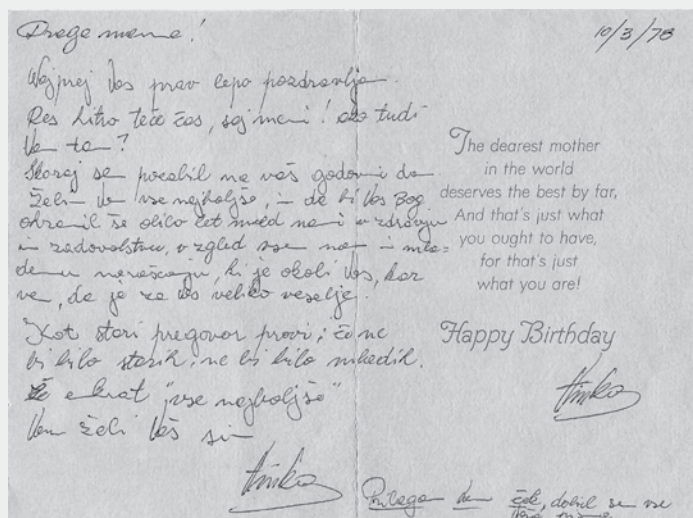 Draga mama!
10/3/78
Najprej Vas prav lepo pozdravljam.
Res hitro teče čas, saj meni! ali tudi
Vam ta?
Skoraj sem pozabil na vaš godovni dan
Želim Vam vse najboljše, in da bi Vas Bog
ohranil še veliko let med nami v zdravju
in zadovolstvu, v zgled vsem nam in mla=
demu naraščaju, ki je okoli Vas, kar
vem, da je za Vas veliko veselje.
Kot stari pregovor pravi; če ne
bi bilo starih, ne bi bilo mladih.
Še enkrat "vse najboljše"
Vam želi Vaš sin
Vinko
The dearest mother
in the world
deserves the best by far,
And that's just what
you ought to have,
for that's just
what you are!
Happy Birthday
Vinko
Prilagam Vam ček, dobil sem vse